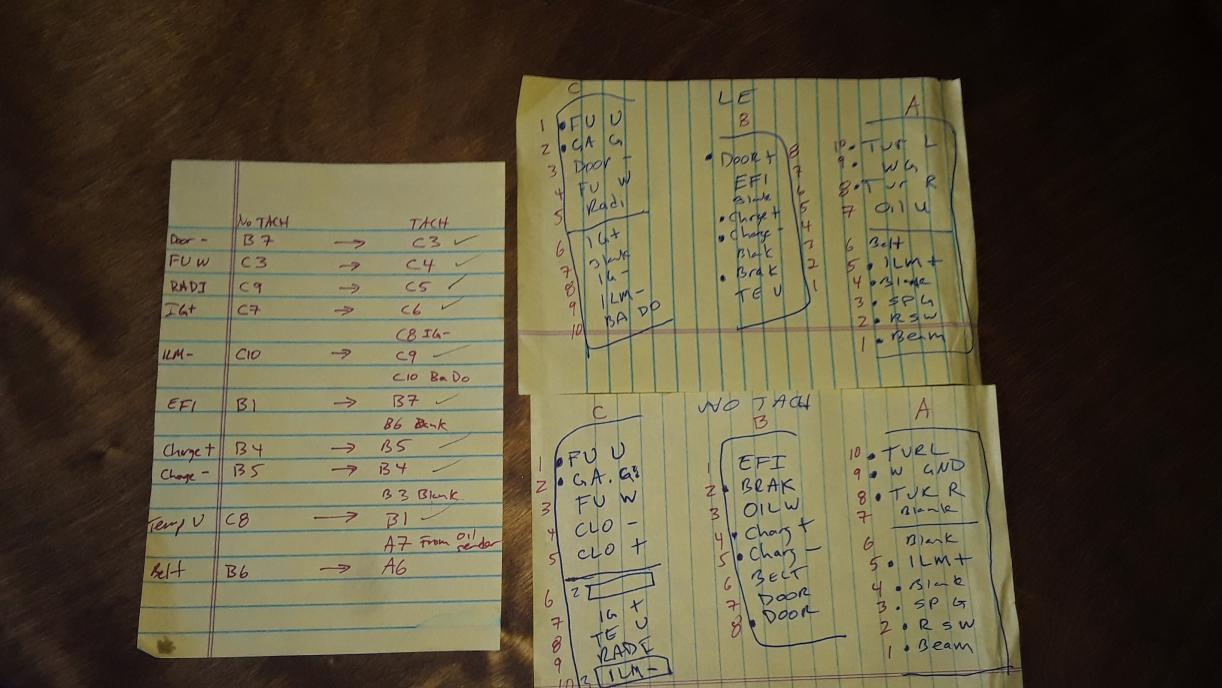 No TACH TACH
Door- B7 → C3 ✓
FU W C3 → C4 ✓
RADI C9 → C5 ✓
IG+ C7 → C6 ✓
C8 IG-
ILM- C10 → C9 ✓
C10 BaDo
EFI B1 → B7 ✓
B6 Blank
Charge+ B4 → B5 ✓
Charge- B5 → B4 ✓
B3 Blank
Temp U C8 → B1 ✓
A7 From oil sender
Belt B6 → A6
LE
C
1 • FU U
2 • GA G
3 Door -
4 FU W
5 Radi
6 IG+
7 Blank
8 IG-
9 ILM-
10 BA DO
B
• DOOR+ 8
EFI 7
Blank 6
• Charge+ 5
• Charge- 4
Blak 3
• Brak 2
TE U 1
A
10 • Tur L
9 • W G
8 • Tur R
7 Oil U
6 Belt
5 • ILM+
4 • Blank
3 • SPG
2 • RSW
1 • Beam
NO TACH
C
1 • FU U
2 • GA. G
3 FU W
4 CLO -
5 CLO +
6
7 IG +
8 TE U
9 RADI
10 ILM-
B
1 EFI
2 • BRAK
3 OILW
4 • Charg+
5 • Charg-
6 BELT
7 DOOR
8 • DOOR
A
10 • TURL
9 • W GND
8 • TUR R
7 Blank
6 Blank
5 • ILM+
4 • Blank
3 • SPG
2 • RSW
1 • Beam